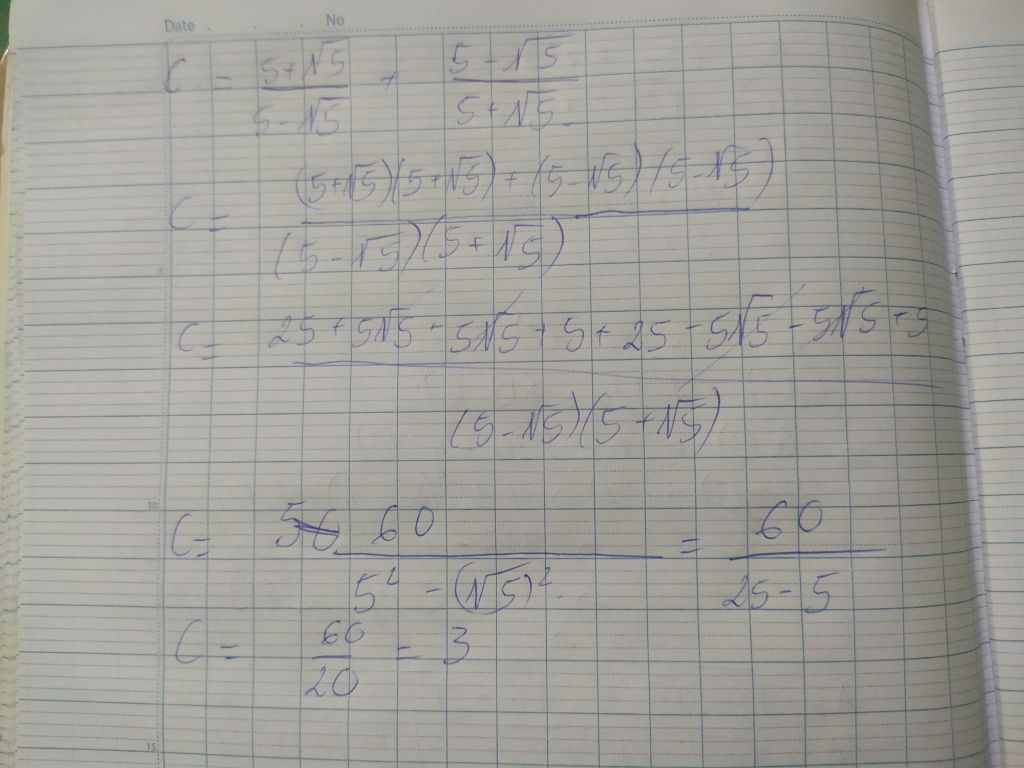 Date . . . No
C = \frac{5+√5}{5-√5} + \frac{5-√5}{5+√5}
C = \frac{(5+√5)(5+√5) + (5-√5)(5-√5)}{(5-√5)(5+√5)}
C = \frac{25+5√5+5√5+5+25-5√5-5√5+5}{(5-√5)(5+√5)}
C = \frac{60}{5² - (√5)²} = \frac{60}{25-5}
C = \frac{60}{20} = 3
5
10
15